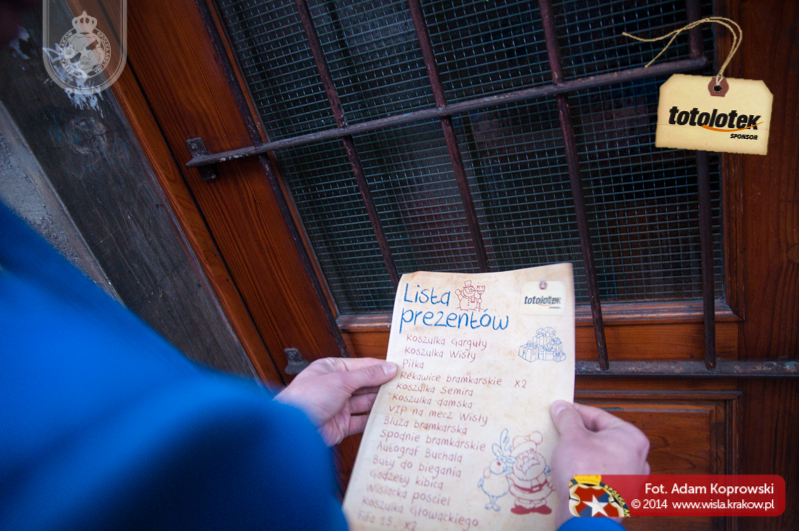 totolotek
SPONSOR
Lista
prezentów
totolotek
Koszulka Garguły
Koszulka Wisły
Piłka
Rękawice bramkarskie x2
Koszulka Semira
Koszulka damska
VIP na mecz Wisły
Bluza bramkarska
Spodnie bramkarskie
Autograf Buchala
Buty do biegania
Gadżety kibica
Wiślacka pościel
Koszulka Głowackiego
Fifa 15. x2
Fot. Adam Koprowski
© 2014 www.wisla.krakow.pl